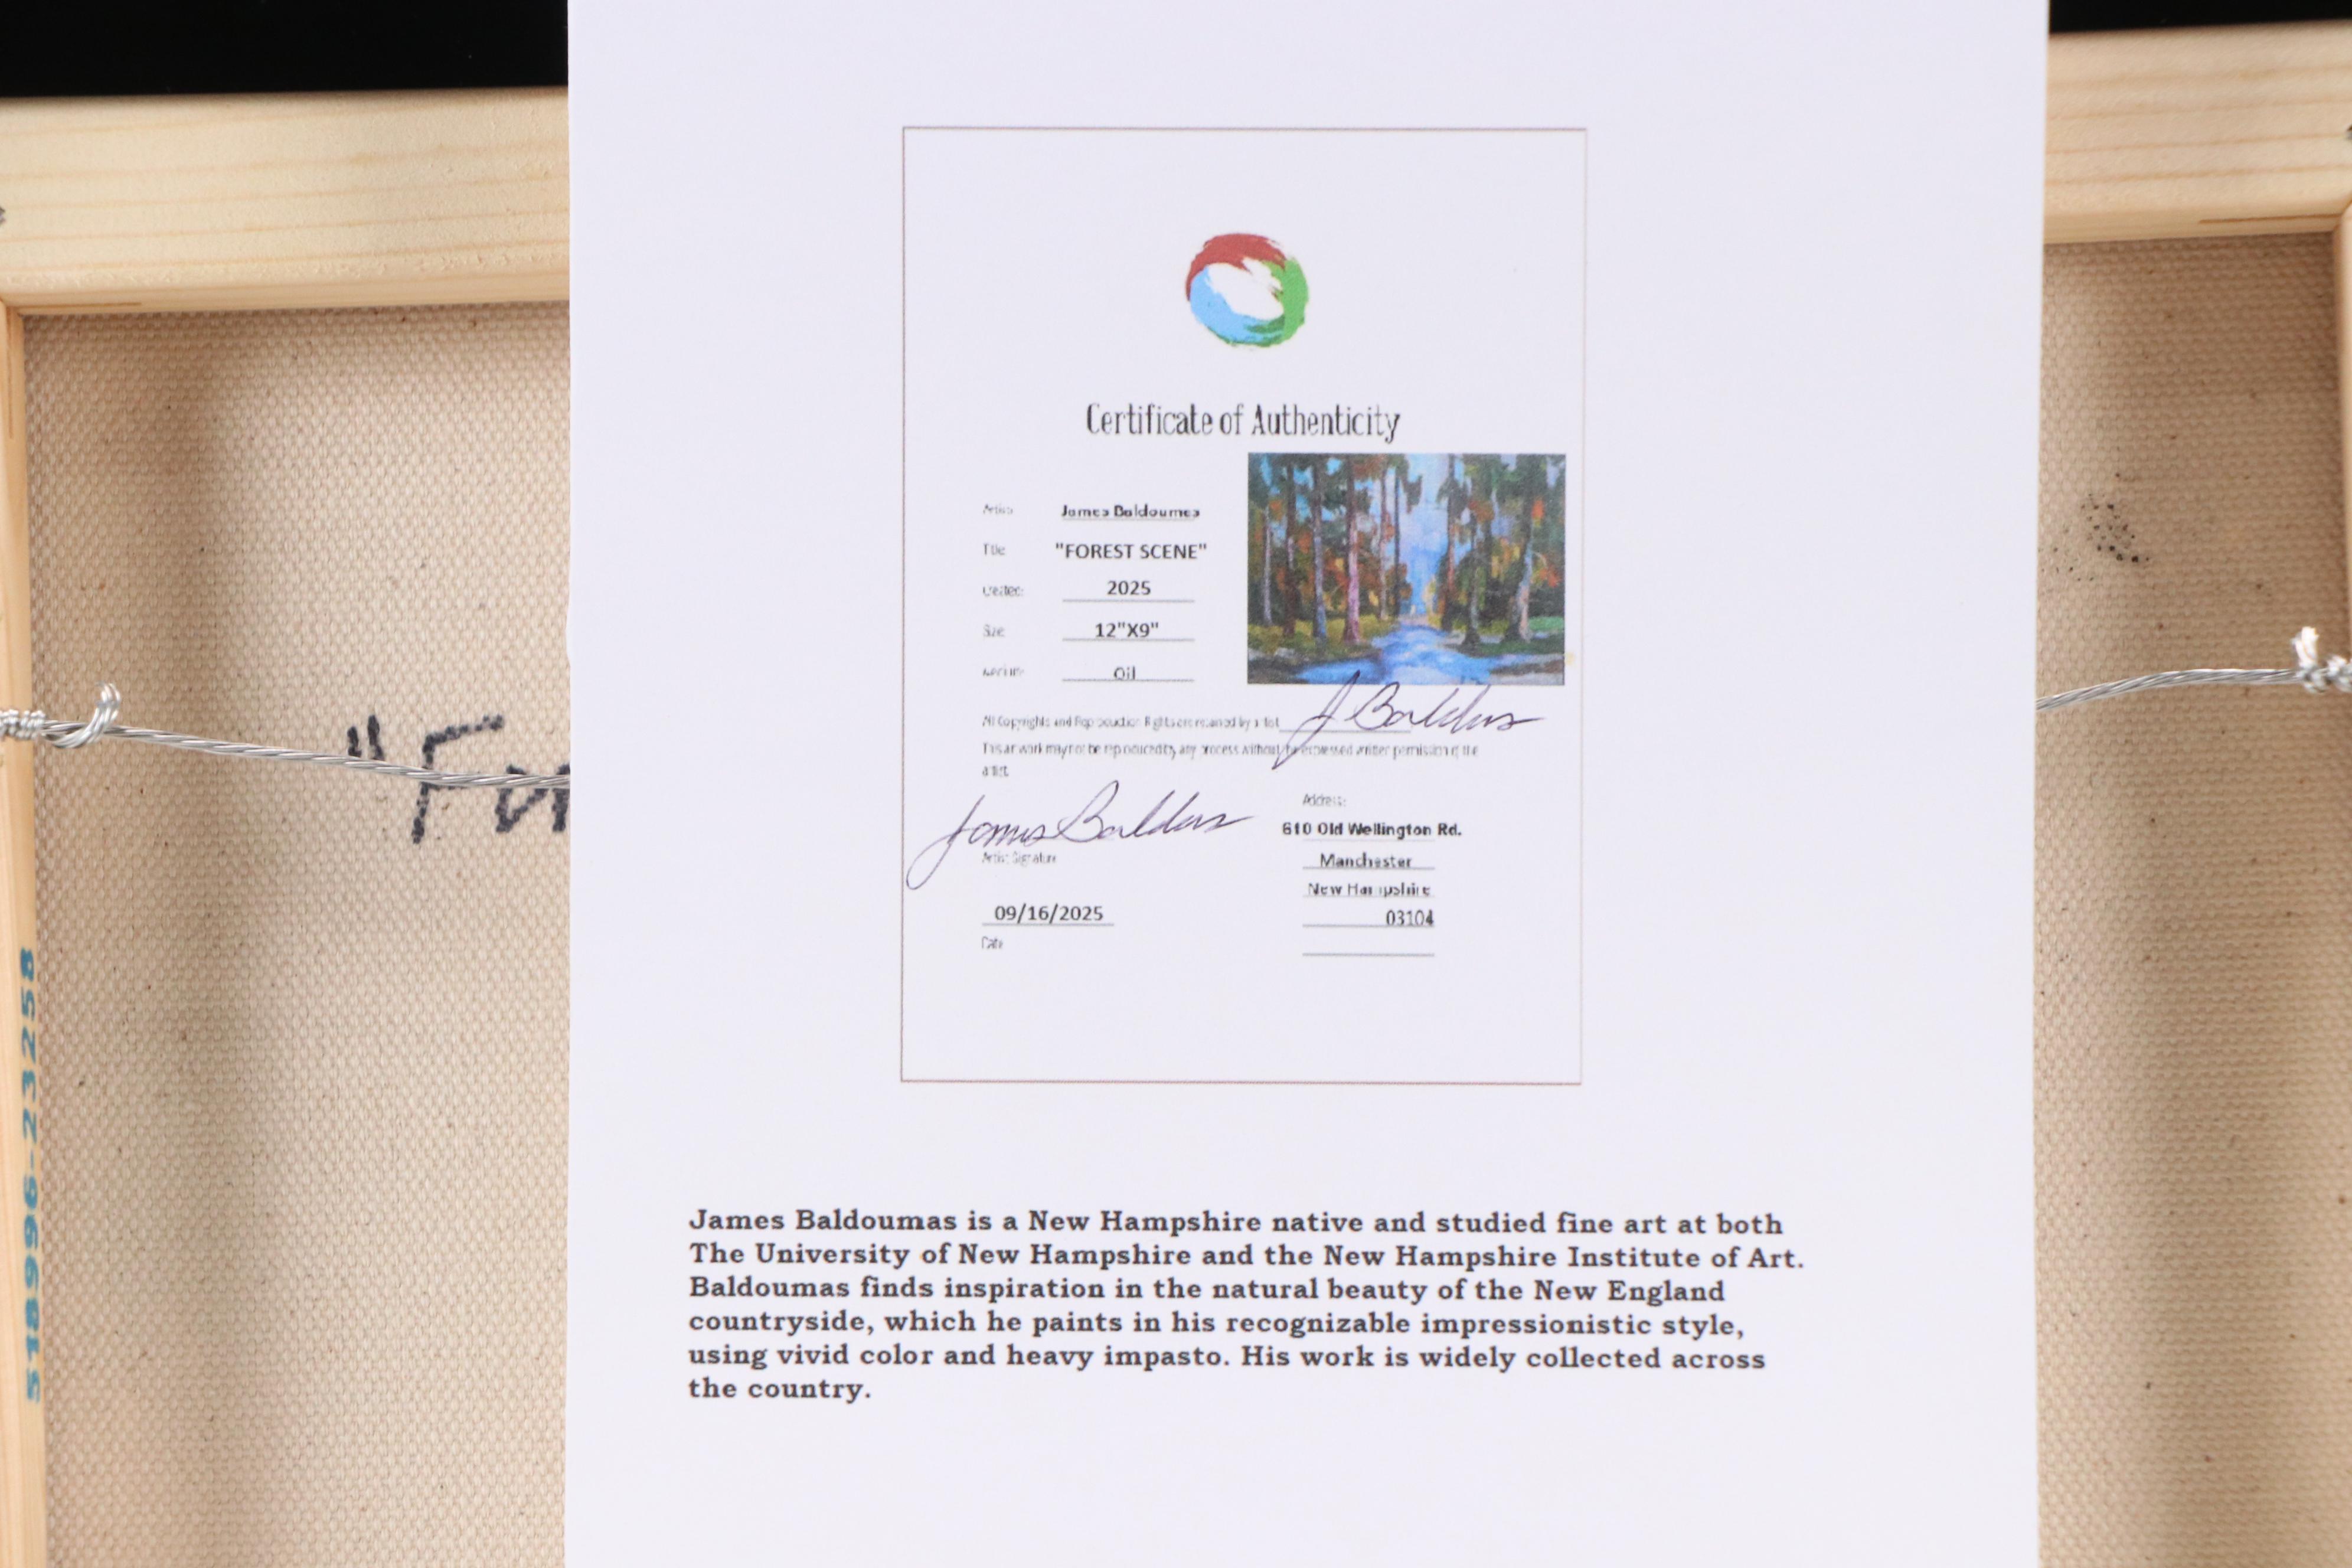 Certificate of Authenticity
Artist: James Baldoumas
Title: "FOREST SCENE"
Created: 2025
Size: 12"X9"
Medium: Oil
All Copyrights and Reproduction Rights are retained by artist J Baldoumas
This artwork may not be reproduced by any process without the expressed written permission of the
artist.
James Baldoumas
Artist Signature
Address:
610 Old Wellington Rd.
Manchester
New Hampshire
03104
09/16/2025
Date
"For
518996-23258
James Baldoumas is a New Hampshire native and studied fine art at both
The University of New Hampshire and the New Hampshire Institute of Art.
Baldoumas finds inspiration in the natural beauty of the New England
countryside, which he paints in his recognizable impressionistic style,
using vivid color and heavy impasto. His work is widely collected across
the country.